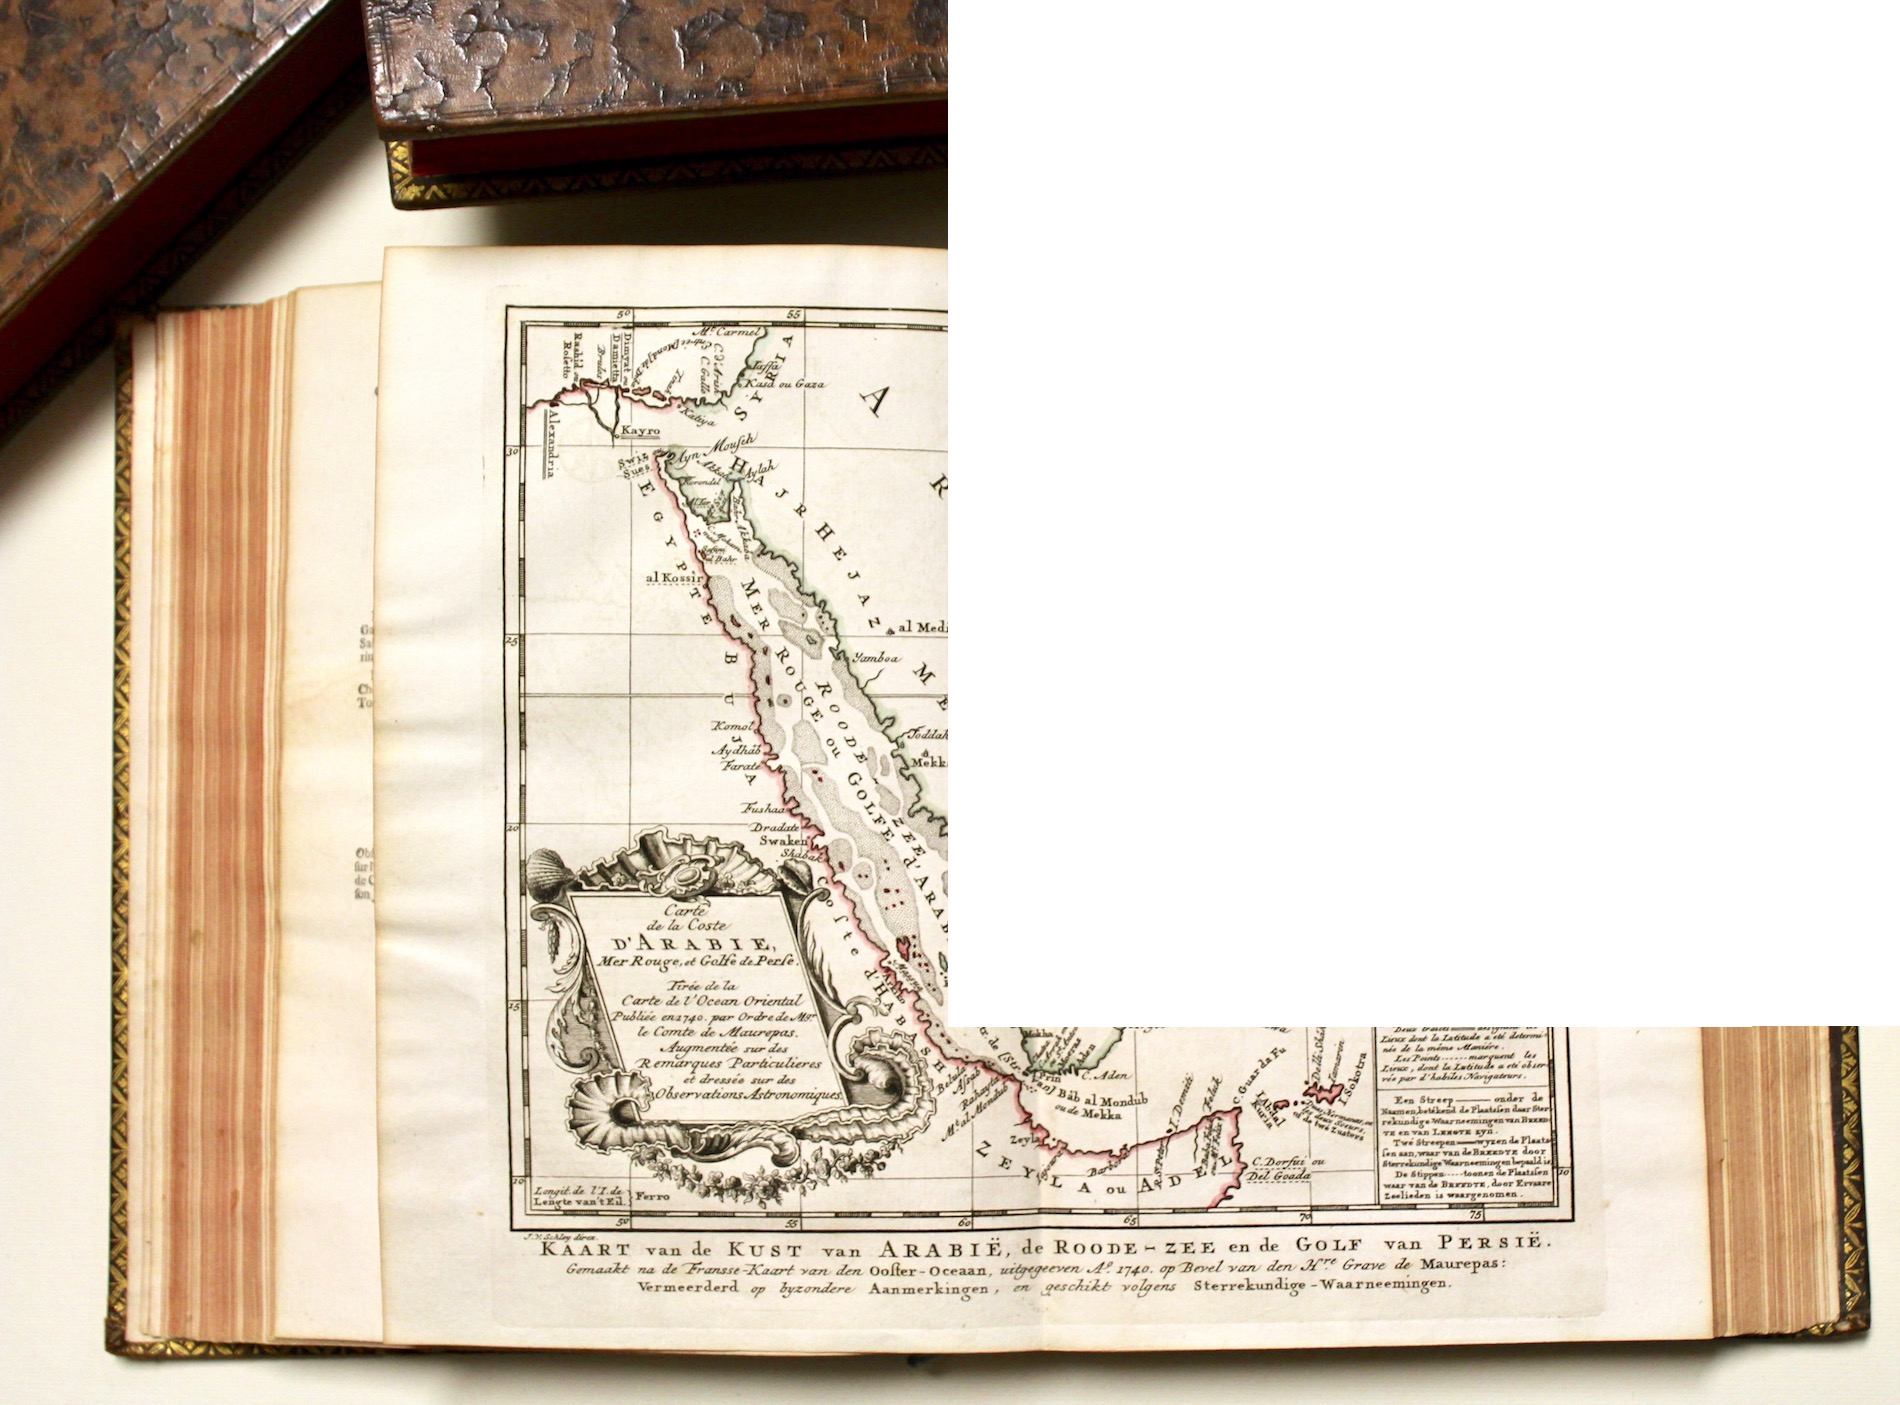 50
55
Mt. Carmel
Jaffa
Kasa ou Gaza
SYRIA
Rashid ou
Rosetto
Brulos
Dimyat ou
Damietta
C. Galle
Katiya
Alexandria
Kayro
A
30
Swis
Sues
Ayn Mousch
Aylah
Korondil
HEJAZ
R
EGYPTE
al Kossir
MER ROUGE ou GOLFE d'ARAB
ROODE-ZEE
25
al Medi
Yamboa
ME
BUJA
Komol
Aydhâb
Farate
Joddah
Mekk
Fushaa
20
Dradate
Swaken
Shabak
Coste d'HABASH
Carte
de la Coste
D'ARABIE,
Mer Rouge, et Golfe de Perse.
Tirée de la
Carte de l'Ocean Oriental
Publiée en 1740. par Ordre de Mgr
le Comte de Maurepas.
Augmentée sur des
Remarques Particulieres
et dressée sur des
Observations Astronomiques.
15
Mekha
Aden
C. Aden
Prin
Bâb al Mondub
ou de Mekka
Belula
Assab
Rahayta
Mt. al Mondub
Zeyla
Barbora
ZEYLA ou ADEL
I. Demiti
Feluk
C. Guarda Fu
C. Dorfui ou
Del Goada
I. Abdal
Kuria
I. Sokotra
Tamarin
Lieux dont la Latitude a été determi-
née de la même Maniére.
Les Points ...... marquent les
Lieux, dont la Latitude a été obser-
vée par d'habiles Navigateurs.
Een Streep —— onder de
Naamen, betékend de Plaatsen daar Ster-
rekundige Waarneemingen van BREED-
TE en van LENGTE zyn.
Twé Streepen —— wyzen de Plaats-
sen aan, waar van de BREEDTE door
Sterrekundige Waarneemingen bepaald is.
De Stippen ..... toonen de Plaatsen
waar van de BREEDTE, door Ervaare
Zeelieden is waargenomen.
10
10
Longit. de l'I. de
Lengte van't Eil.
Ferro
50
55
60
65
70
75
J. V. Schley direx.
KAART van de KUST van ARABIË, de ROODE-ZEE en de GOLF van PERSIË.
Gemaakt na de Fransse-Kaart van den Ooster-Oceaan, uitgegeeven Ao. 1740. op Bevel van den Hre Grave de Maurepas:
Vermeerderd op byzondere Aanmerkingen, en geschikt volgens Sterrekundige-Waarneemingen.